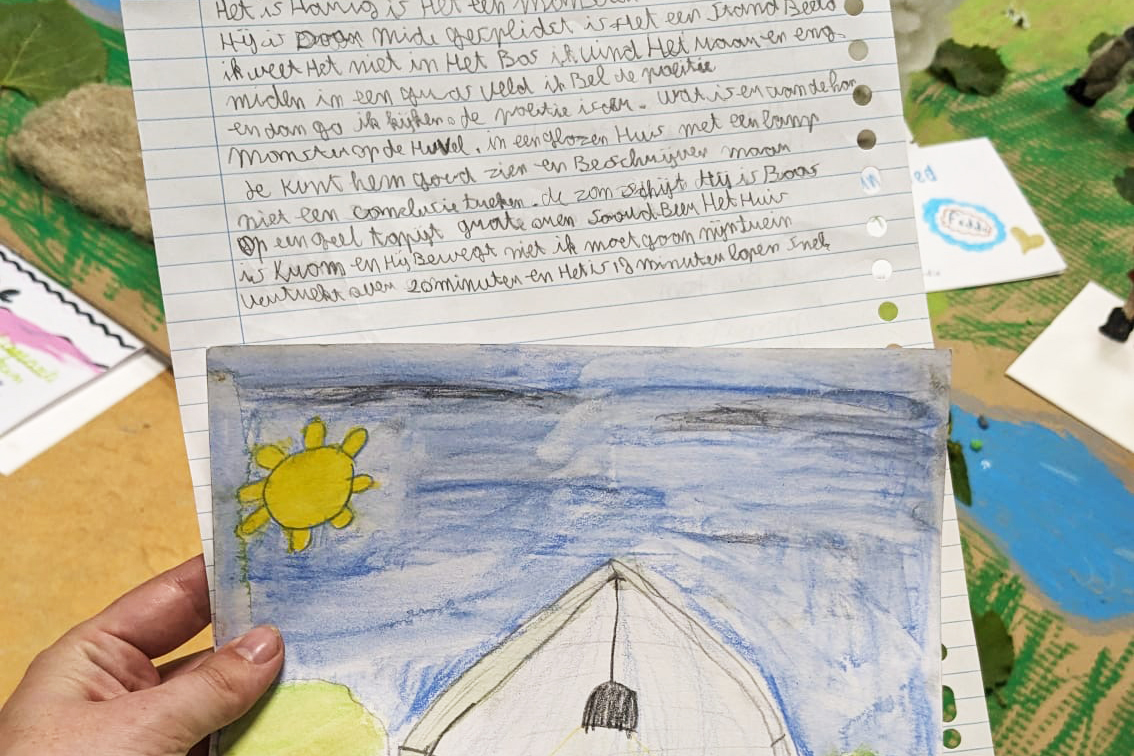 Het is Harig is Het een
Hij is Doormide gesplidst is Het een Stand Beeld
ik weet Het niet in Het Bos ik vind Het maar en eng.
miden in een veld ik Bel de politie
en dan ga ik kijken. de politie is er. wat is er aan de han
Monster op de Huvel. in een glazen Huis met een lamp
Je kunt hem goed zien en Beschrijven maar
niet een conclusie treken. de zon schijt Hij is Boos
Op een geel tapijt grote oren Het Huis
is Krom en Hij Beweegt niet ik moet gaan mijn trein
vertrekt over 20 minuten en Het is 18 minuten lopen Snel
in ed
Fedde